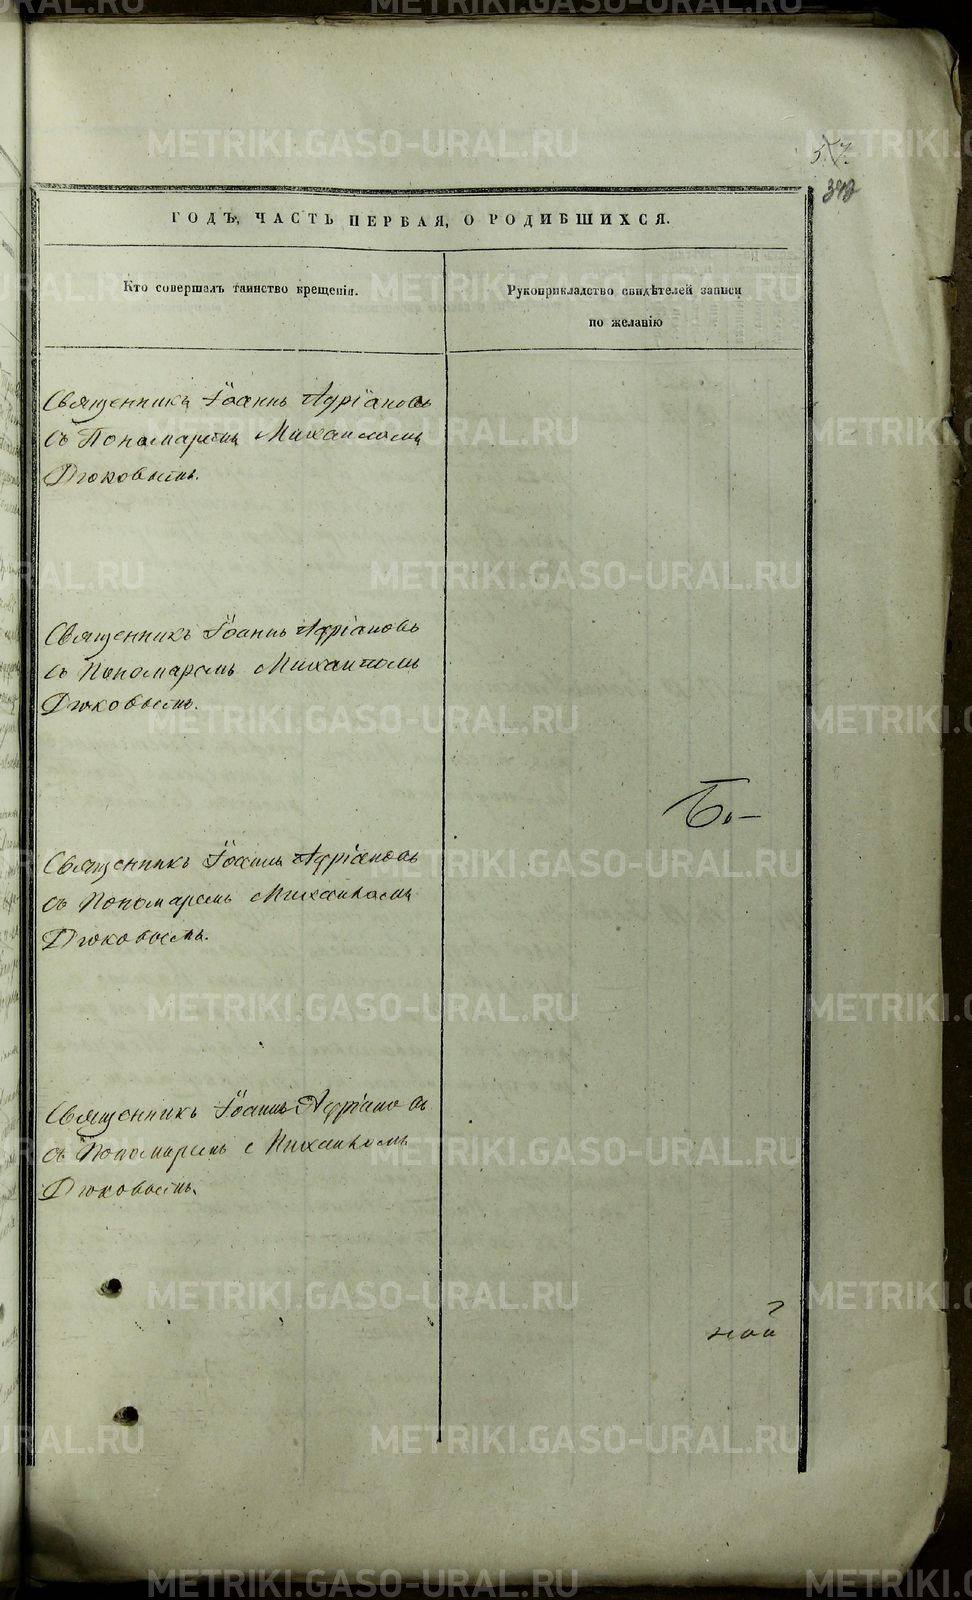 57.
343
ГОДЪ, ЧАСТЬ ПЕРВАЯ, О РОДИВШИХСЯ.
Кто совершалъ таинство крещенія.
Рукоприкладство свидѣтелей записи
по желанію
Священникъ Іоаннъ Адріановъ
съ Пономаремъ Михаиломъ
Дюковымъ.
Священникъ Іоаннъ Адріановъ
съ Пономаремъ Михаиломъ
Дюковымъ.
Священникъ Іоаннъ Адріановъ
съ Пономаремъ Михаиломъ
Дюковымъ.
Священникъ Іоаннъ Адріановъ
съ Пономаремъ Михаиломъ
Дюковымъ.
ной
METRIKI.GASO-URAL.RU